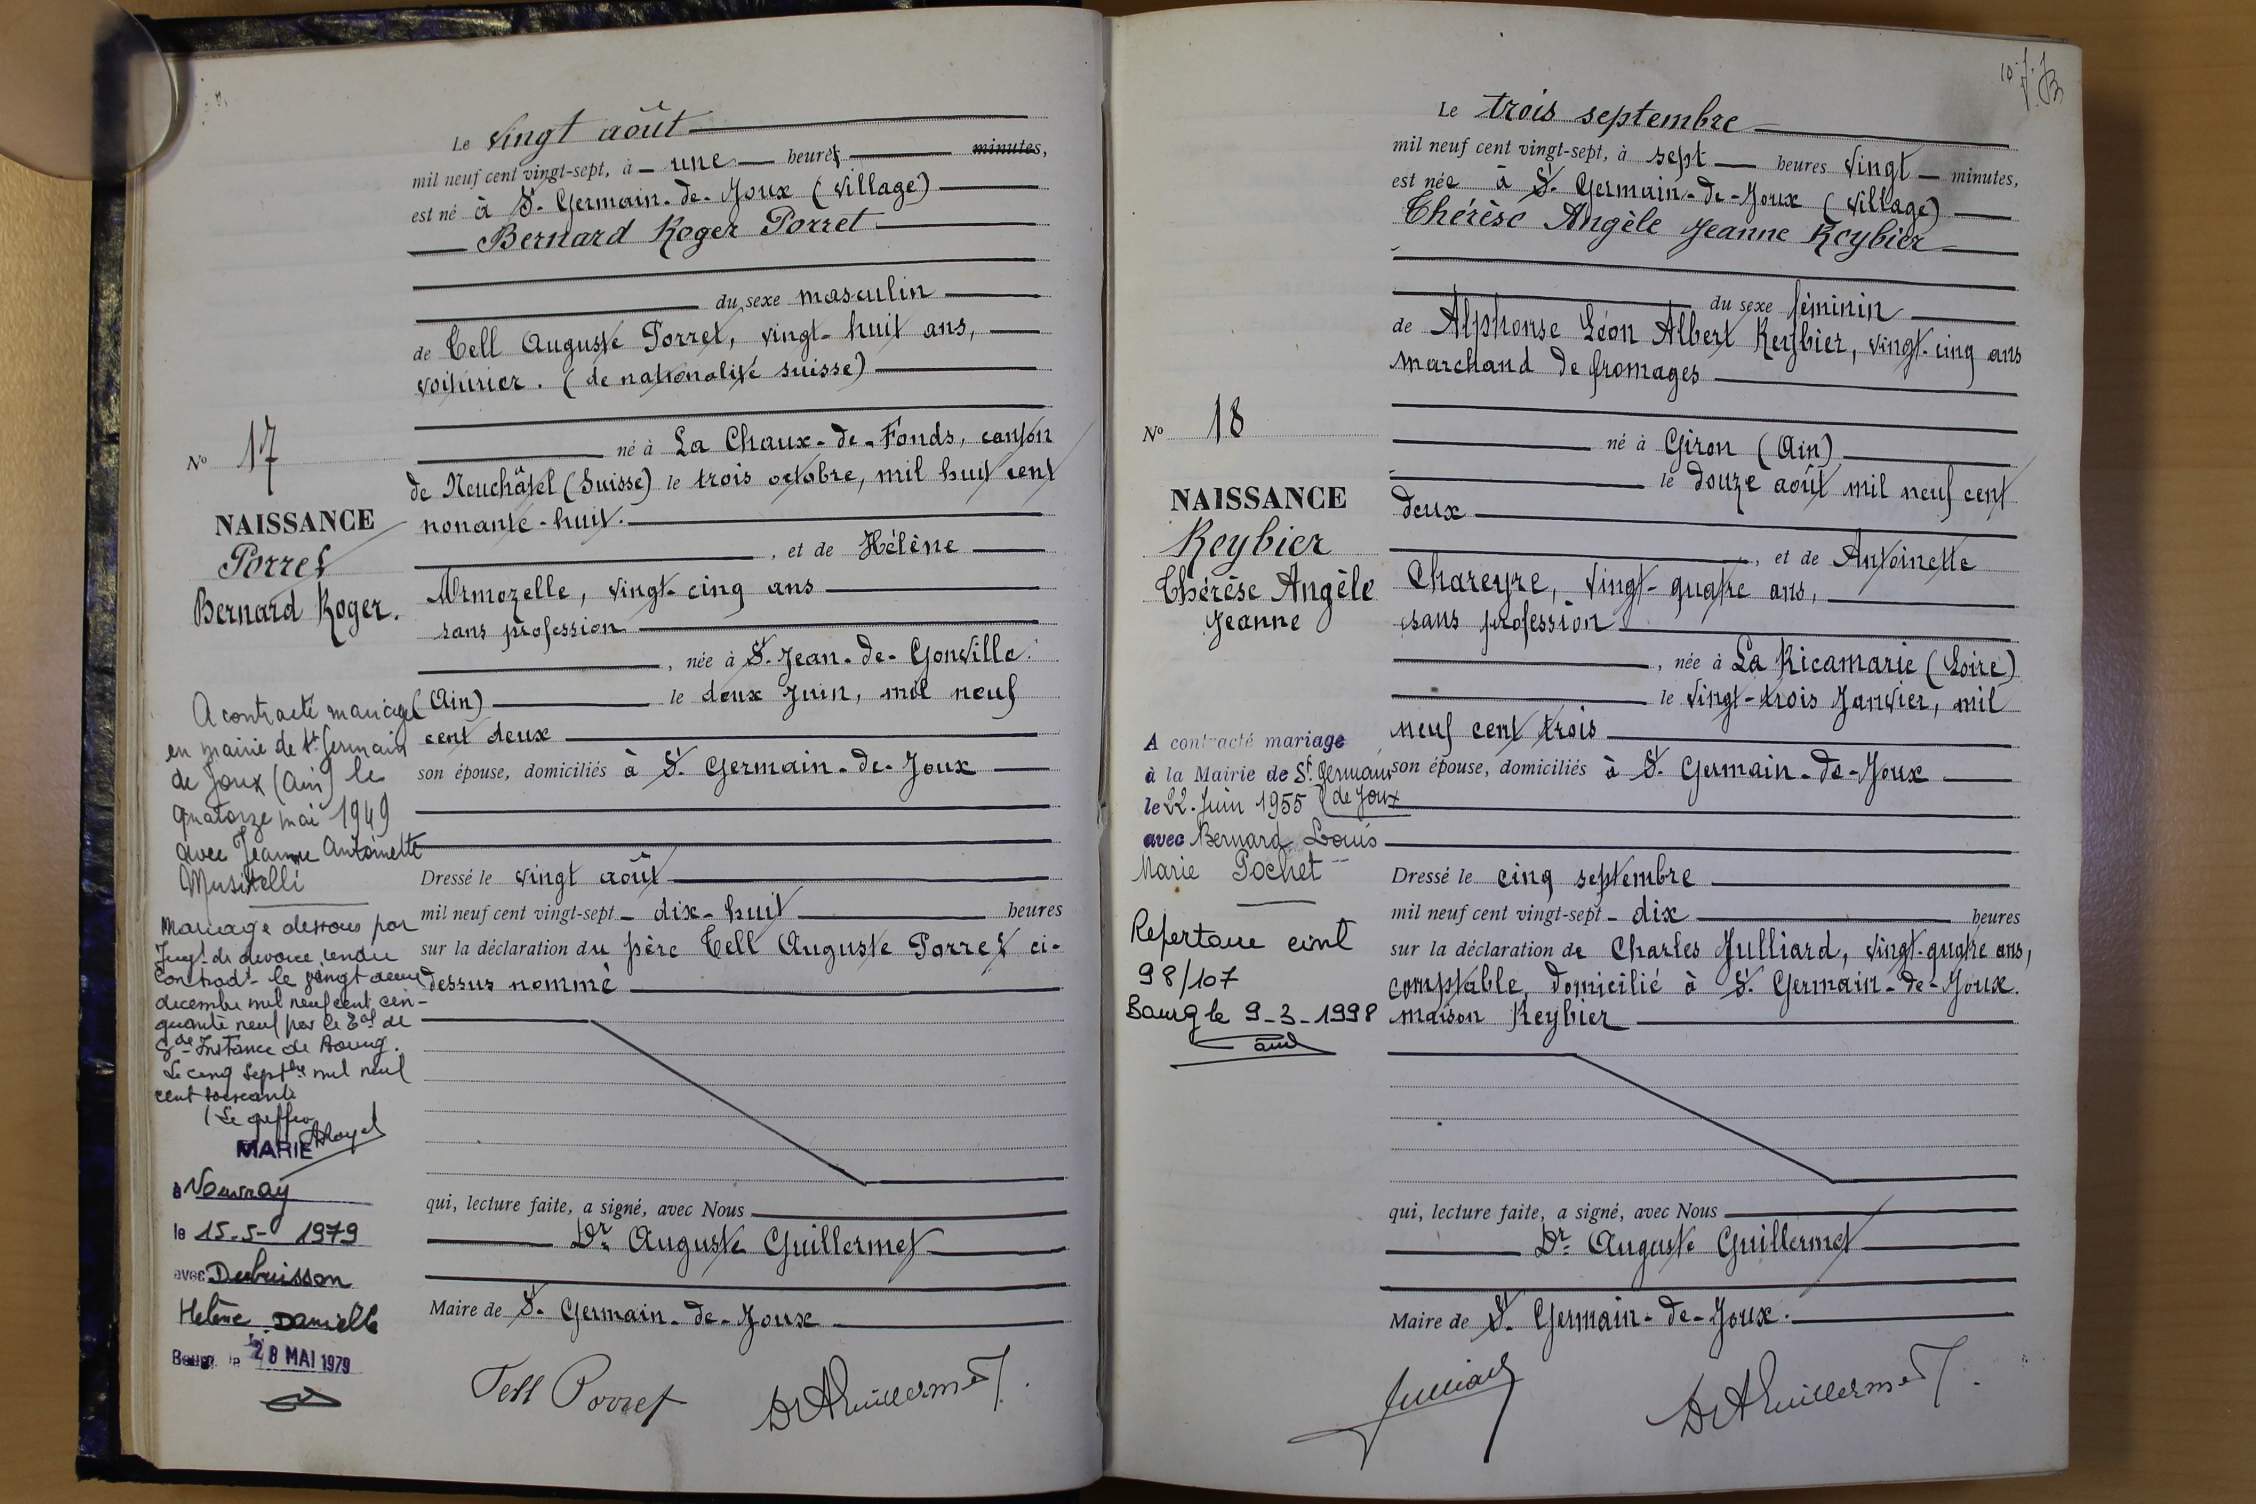 Le vingt août
mil neuf cent vingt-sept, à une heures minutes,
est né à St. Germain-de-Joux (village)
Bernard Roger Porret
du sexe masculin
de Tell Auguste Porret, vingt-huit ans,
voiturier. (de nationalité suisse)
né à La Chaux-de-Fonds, canton
de Neuchâtel (Suisse) le trois octobre, mil huit cent
nonante-huit.
, et de Hélène
Mermozelle, vingt-cinq ans
sans profession
, née à St. Jean-de-Gonville
(Ain) le deux Juin, mil neuf
cent deux
son épouse, domiciliés à St. Germain-de-Joux
Dressé le vingt août
mil neuf cent vingt-sept - dix-huit heures
sur la déclaration du père Tell Auguste Porret ci-
dessus nommé
qui, lecture faite, a signé, avec Nous
Dr Auguste Guillermet
Maire de St. Germain-de-Joux
Tell Porret DrAGuillermet
No 17
NAISSANCE
Porret
Bernard Roger.
A contracté mariage
en mairie de St Germain
de Joux (Ain) le
quatorze mai 1949
avec Jeanne Antoinette
Musitelli
Mariage dissous par
Jugt de divorce rendu
contradt le vingt deux
décembre mil neuf cent cin-
quante neuf par le Tal de
Gde Instance de Bourg.
Le cinq Septbre mil neuf
cent soixante
Le greffier
MARIE
à Vouvray
le 15-5- 1979
avec Dubuisson
Helène Danielle
Bourg le 28 MAI 1979
10
Le trois septembre
mil neuf cent vingt-sept, à sept heures vingt minutes,
est née à St. Germain-de-Joux (village)
Thérèse Angèle Jeanne Reybier
du sexe féminin
de Alphonse Léon Albert Reybier, vingt-cinq ans
marchand de fromages
né à Giron (Ain)
le douze août mil neuf cent
deux
, et de Antoinette
Chareyre, vingt-quatre ans,
sans profession
, née à La Ricamarie (Loire)
le vingt-trois Janvier, mil
neuf cent trois
son épouse, domiciliés à St. Germain-de-Joux
Dressé le cinq septembre
mil neuf cent vingt-sept - dix heures
sur la déclaration de Charles Julliard, vingt-quatre ans,
comptable, domicilié à St. Germain-de-Joux.
maison Reybier
qui, lecture faite, a signé, avec Nous
Dr Auguste Guillermet
Maire de St. Germain-de-Joux.
Julliard DrAGuillermet
No 18
NAISSANCE
Reybier
Thérèse Angèle
Jeanne
A contracté mariage
à la Mairie de St. Germain
le 22 Juin 1955 (de Joux
avec Bernard Louis
Marie Pochet
Repertoire civil
98/107
Bourg le 9-3-1998